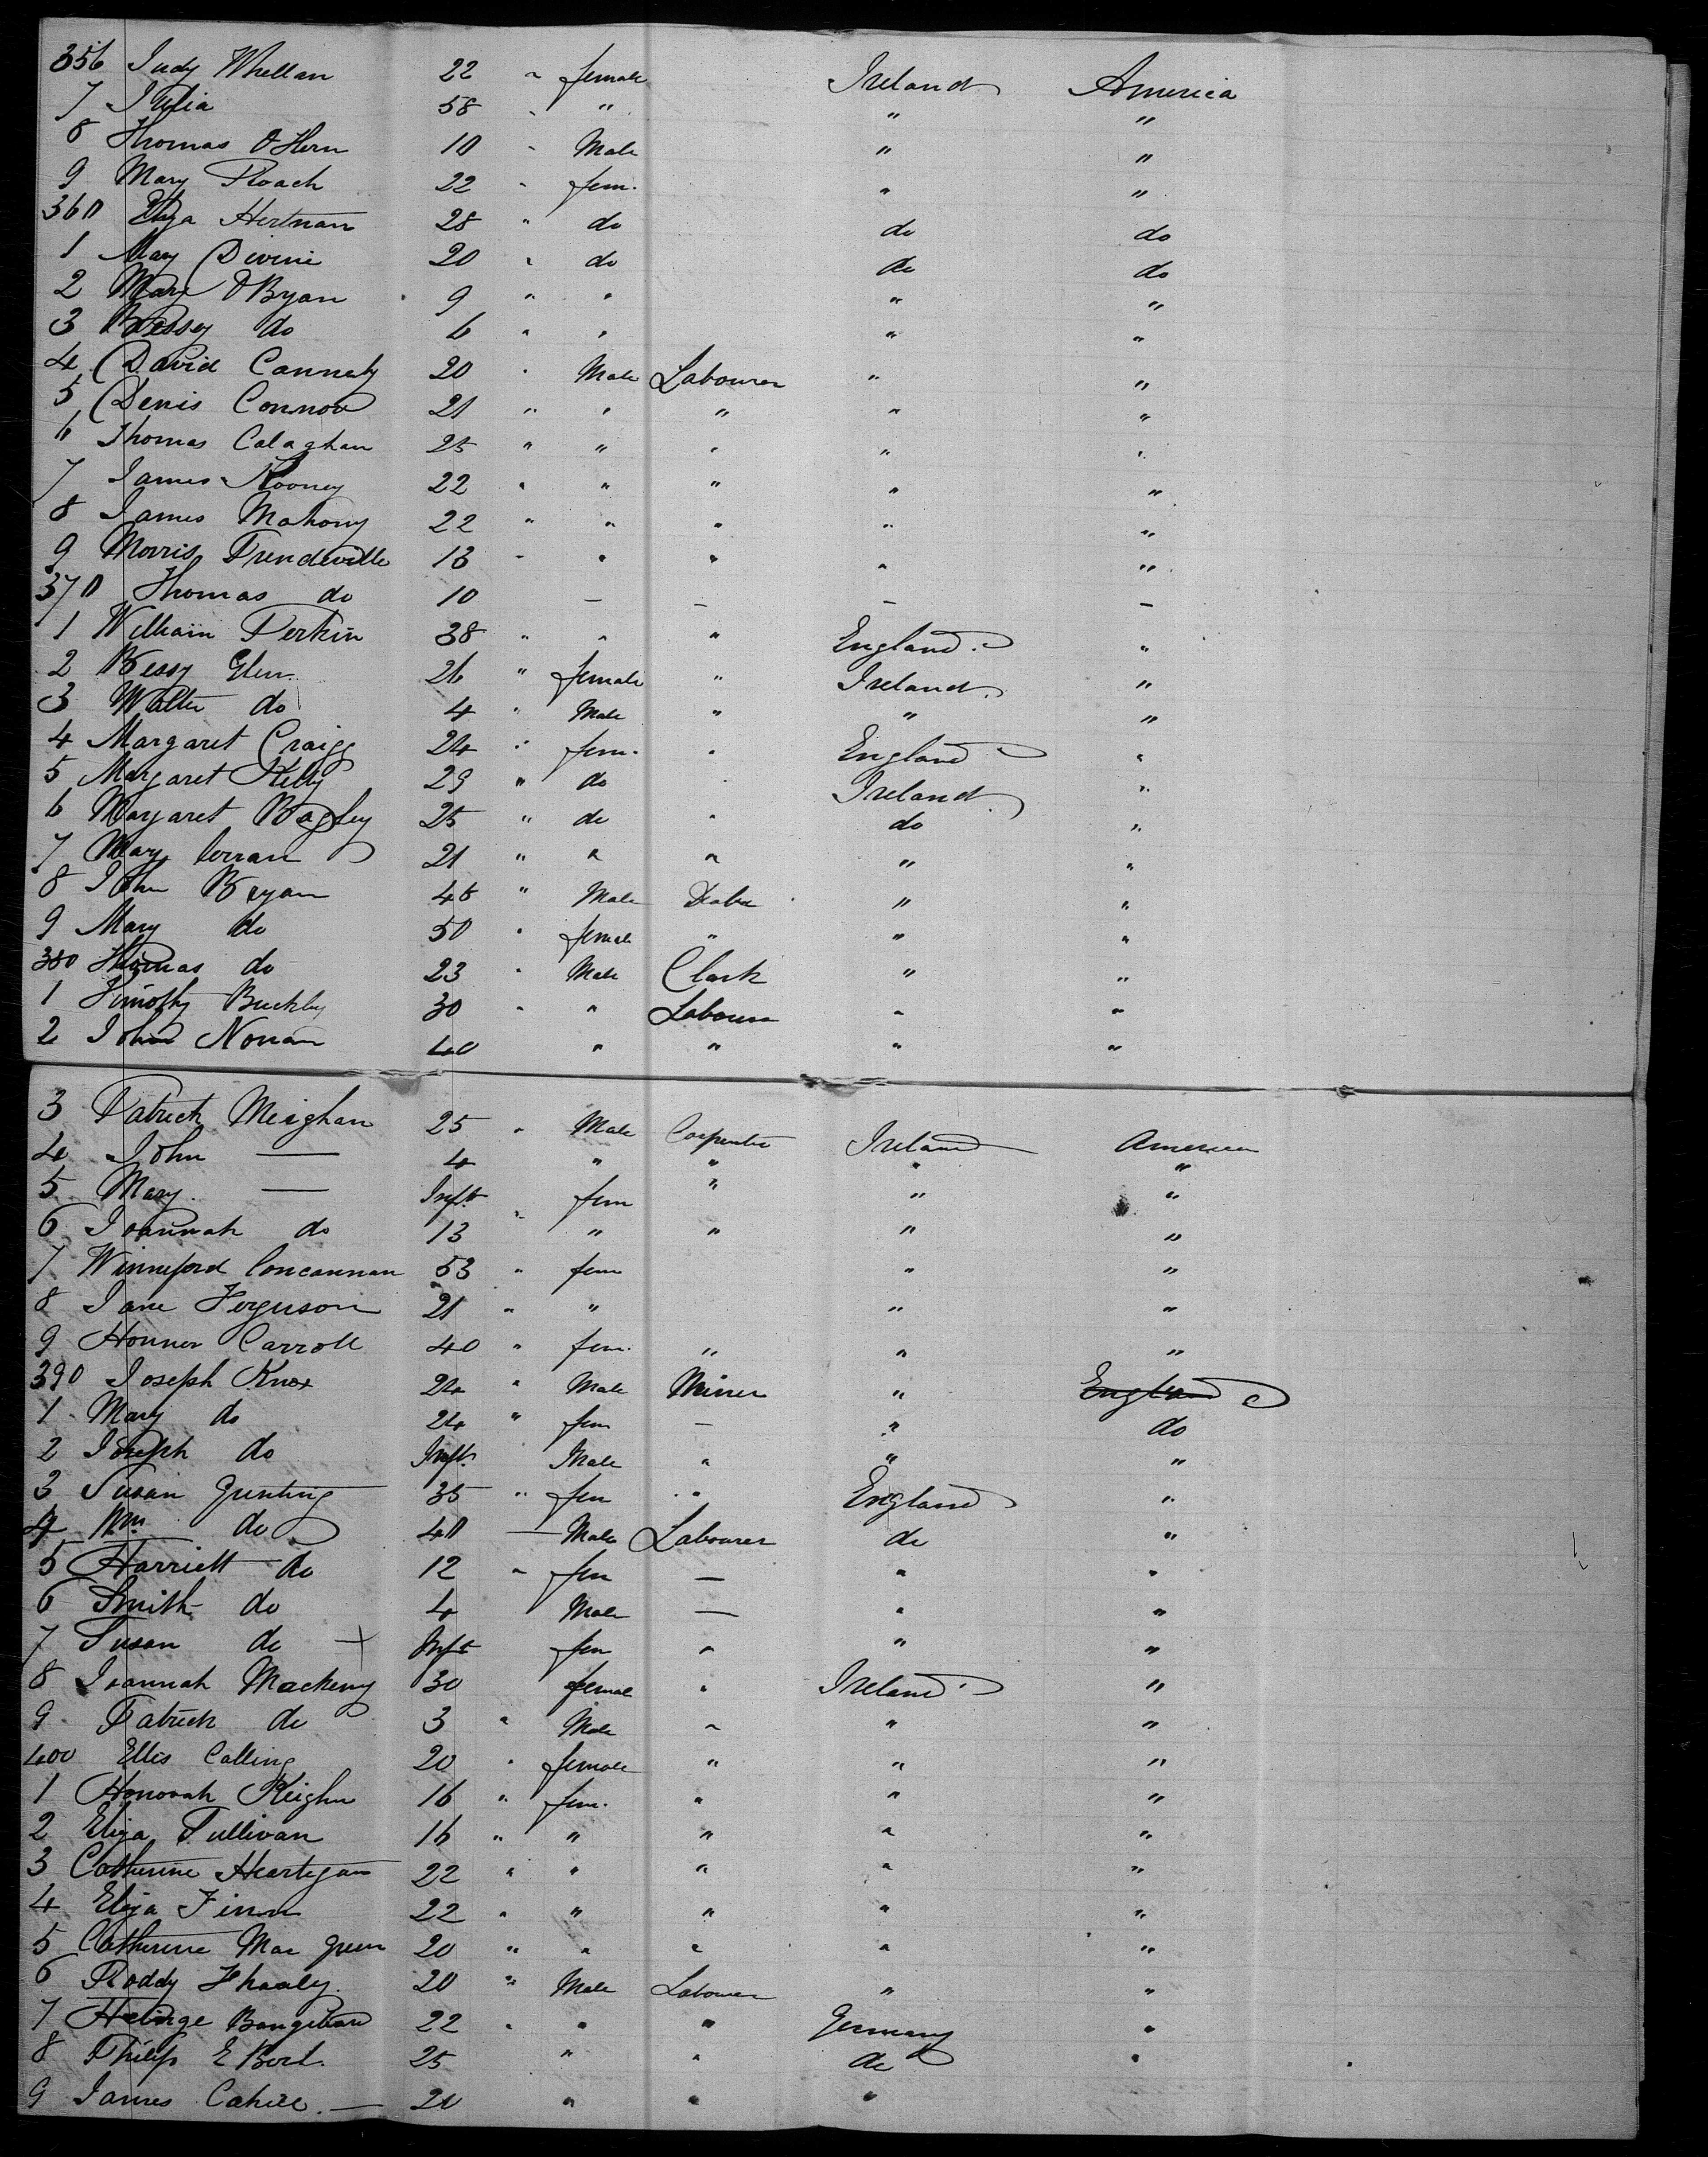 356 Judy Whellan 22 " female Ireland America
7 Julia 58 " " " "
8 Thomas OHern 10 " Male " "
9 Mary Roach 22 " fem. " "
360 Eliza Hertnan 28 " do do do
1 Mary Divine 20 " do do do
2 Mary OBryan 9 " " " "
3 Bessey do 6 " " " "
4 David Connely 20 " Male Labourer " "
5 Denis Connor 21 " " " " "
6 Thomas Calaghan 25 " " " " "
7 James Rooney 22 " " " " "
8 James Mahony 22 " " " " "
9 Morris Trendeville 13 " " " " "
370 Thomas do 10 — — — —
1 William Perkin 38 " " " England "
2 Bessy Glen 26 " female " Ireland "
3 Walter do 4 " Male " " "
4 Margaret Craigg 24 " fem. " England "
5 Margaret Kelly 29 " do " Ireland "
6 Margaret Bagley 25 " do " do "
7 Mary Corran 21 " " " " "
8 John Bryan 45 " Male Labr " "
9 Mary do 50 " female " " "
380 Thomas do 23 " Male Clark " "
1 Timothy Buckley 30 " " Labourer " "
2 John Nonan 40 " " " "
3 Patrick Meighan 25 " Male Carpenter Ireland America
4 John — 4 " " " "
5 Mary — Inft " fem " " "
6 Joannah do 13 " " " "
7 Winneford Concannan 53 " fem " "
8 Jane Ferguson 21 " " " "
9 Honner Carroll 40 " fem. " " "
390 Joseph Knox 24 " Male Miner " England
1 Mary do 24 " fem — " do
2 Joseph do Inft. Male " " "
3 Susan Gunting 35 " fem " England "
4 Wm do 40 — Male Labourer do "
5 Harriett do 12 " fem — " "
6 Smith do 4 Male — " "
7 Susan do + Inft fem " " "
8 Joannah Mackeny 30 female " Ireland "
9 Patrick do 3 " Male " " "
400 Ellis Colling 20 " female " " "
1 Honorah Keighu 16 " fem. " " "
2 Eliza Sullivan 16 " " " " "
3 Catherine Heartegan 22 " " " " "
4 Eliza Finn 22 " " " " "
5 Catherine Mac Green 20 " " " " "
6 Roddy Thealy 20 " Male Labourer " "
7 22 " " " Germany "
8 Philip E Bort 25 " " do "
9 James Cahill — 20 " " "